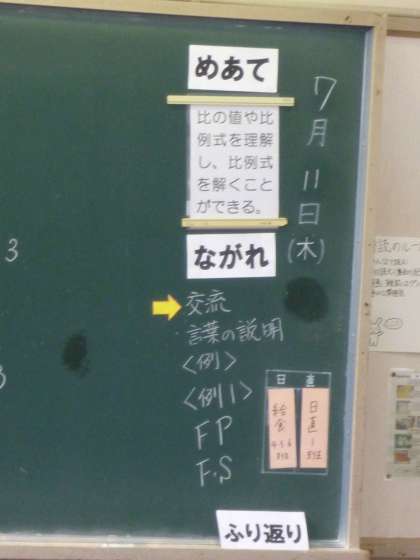 7月11日(木)
めあて
比の値や比
例式を理解
し、比例式
を解くこと
ができる。
ながれ
交流
言葉の説明
<例>
<例1>
FP
F.S
日直
日直
給食
ふり返り
3